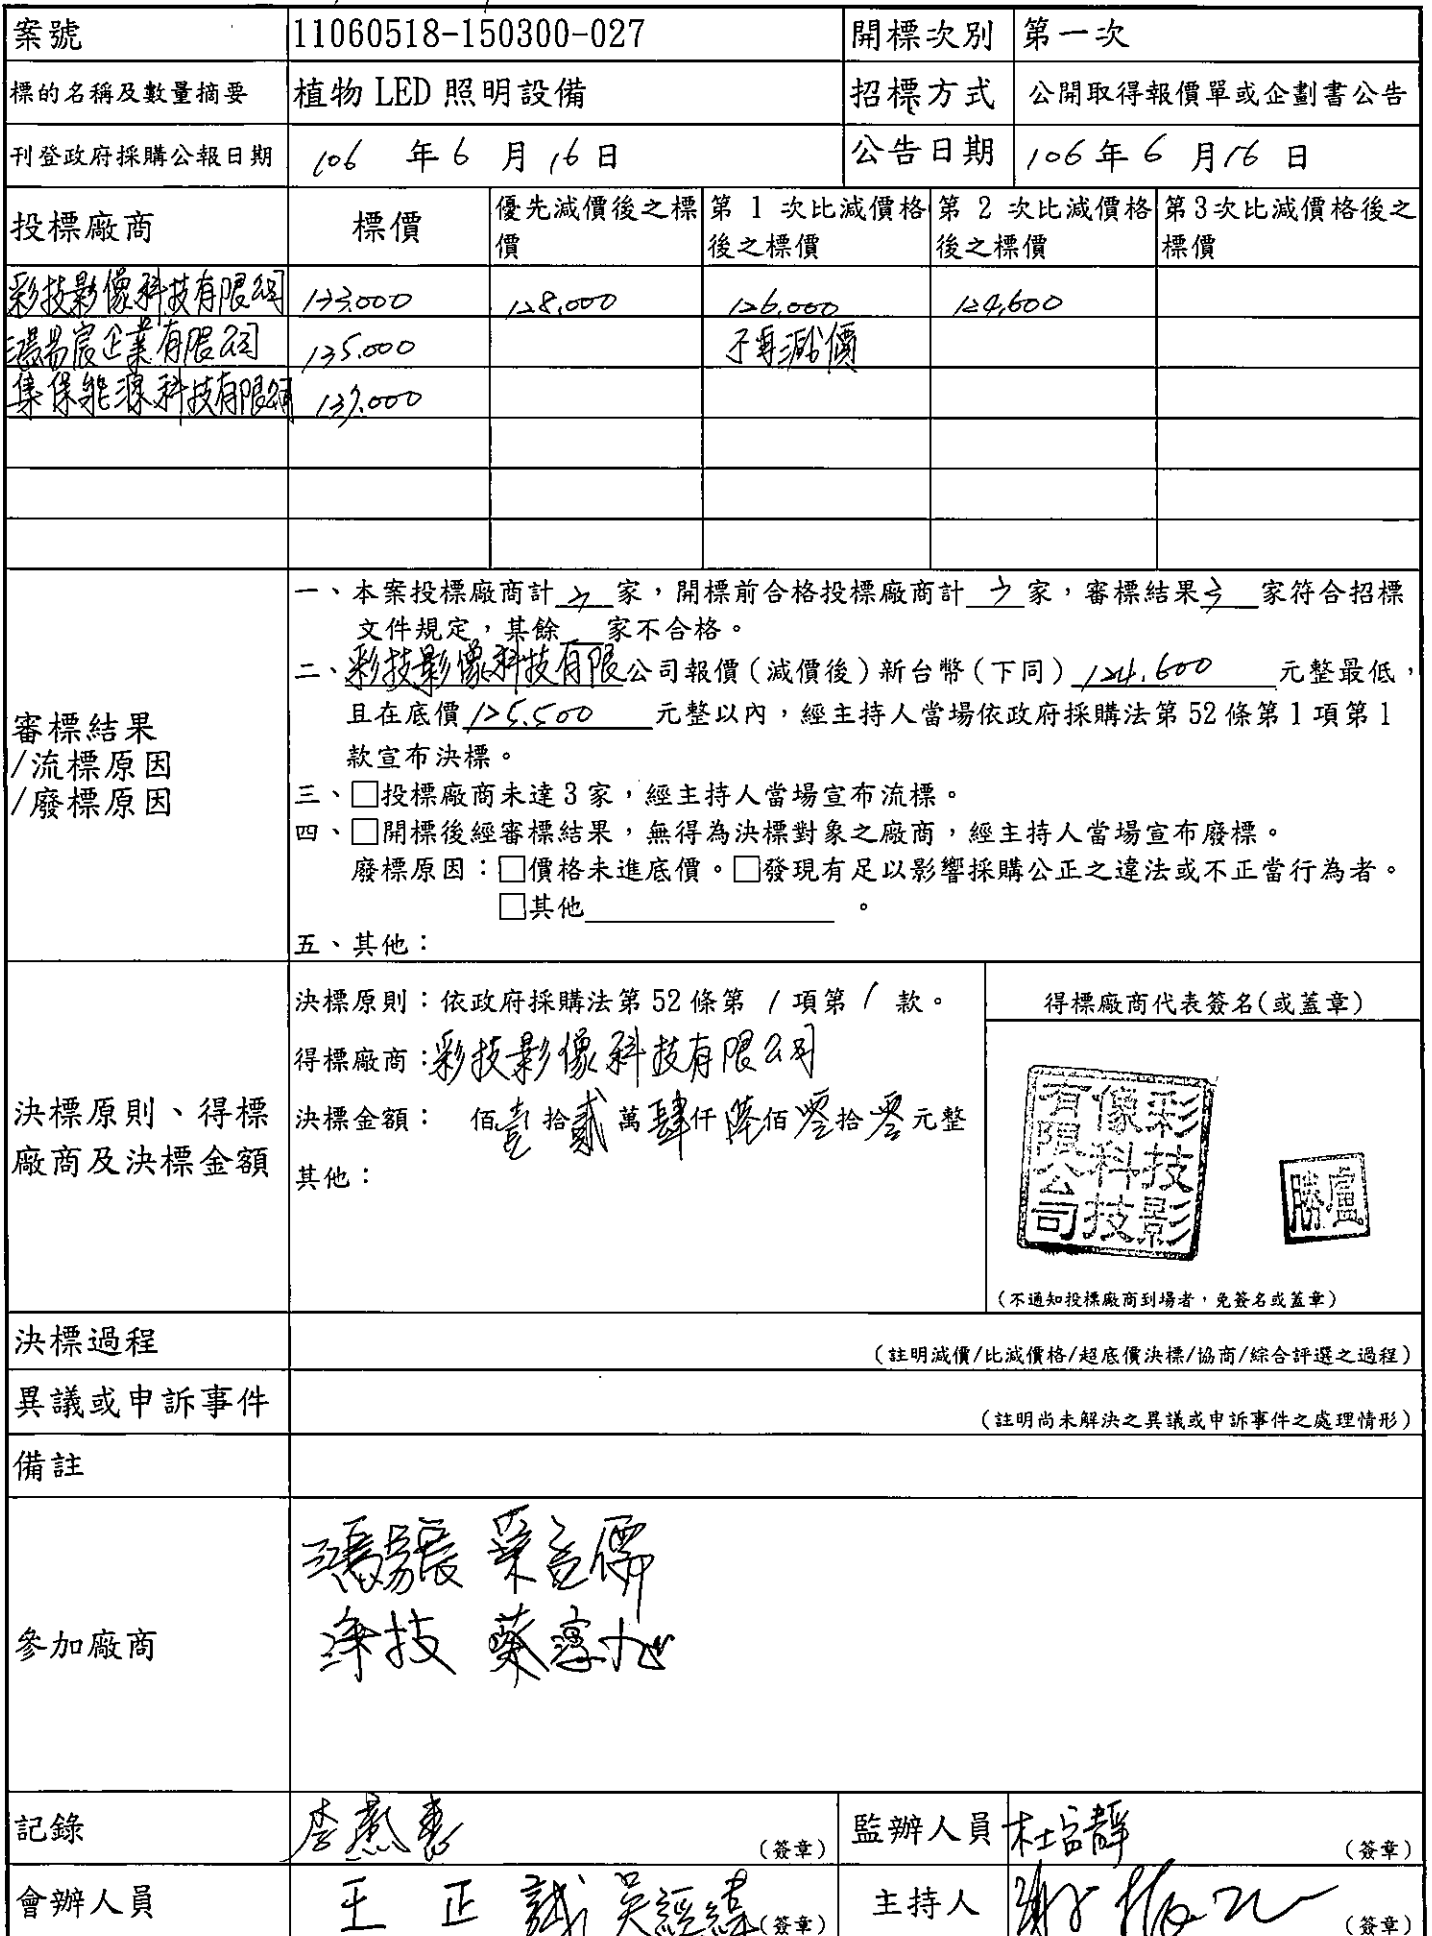 案號 11060518-150300-027 開標次別 第一次
標的名稱及數量摘要 植物 LED 照明設備 招標方式 公開取得報價單或企劃書公告
刊登政府採購公報日期 106 年 6 月 16 日 公告日期 106 年 6 月 16 日
投標廠商 標價 優先減價後之標價 第 1 次比減價格後之標價 第 2 次比減價格後之標價 第3次比減價格後之標價
彩技影像科技有限公司 133,000 128,000 126,000 124,600
企業有限公司 135,000 減價
集保能源科技有限公司
審標結果
/流標原因
/廢標原因
一、本案投標廠商計 3 家，開標前合格投標廠商計 3 家，審標結果 3 家符合招標
文件規定，其餘 家不合格。
二、彩技影像科技有限公司報價（減價後）新台幣（下同）124,600 元整最低，
且在底價 125,500 元整以內，經主持人當場依政府採購法第 52 條第 1 項第 1
款宣布決標。
三、□投標廠商未達 3 家，經主持人當場宣布流標。
四、□開標後經審標結果，無得為決標對象之廠商，經主持人當場宣布廢標。
廢標原因：□價格未進底價。□發現有足以影響採購公正之違法或不正當行為者。
□其他 。
五、其他：
決標原則、得標
廠商及決標金額
決標原則：依政府採購法第 52 條第 1 項第 1 款。
得標廠商：彩技影像科技有限公司
決標金額： 佰壹拾貳萬肆仟陸佰零拾零元整
其他：
得標廠商代表簽名(或蓋章)
彩技影像科技有限公司
盧勝
(不通知投標廠商到場者，免簽名或蓋章)
決標過程 (註明減價/比減價格/超底價決標/協商/綜合評選之過程)
異議或申訴事件 (註明尚未解決之異議或申訴事件之處理情形)
備註
參加廠商
記錄 (簽章) 監辦人員 (簽章)
會辦人員 王正誠 (簽章) 主持人 (簽章)